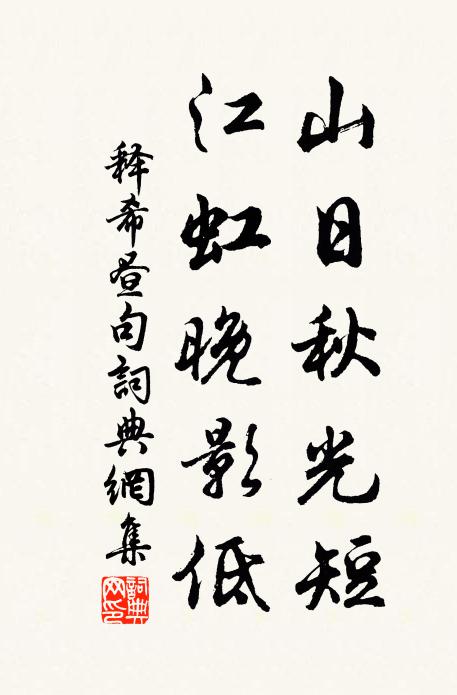 山日秋光短
江虹晚影低
释希昼句詞典網集
詞典网印